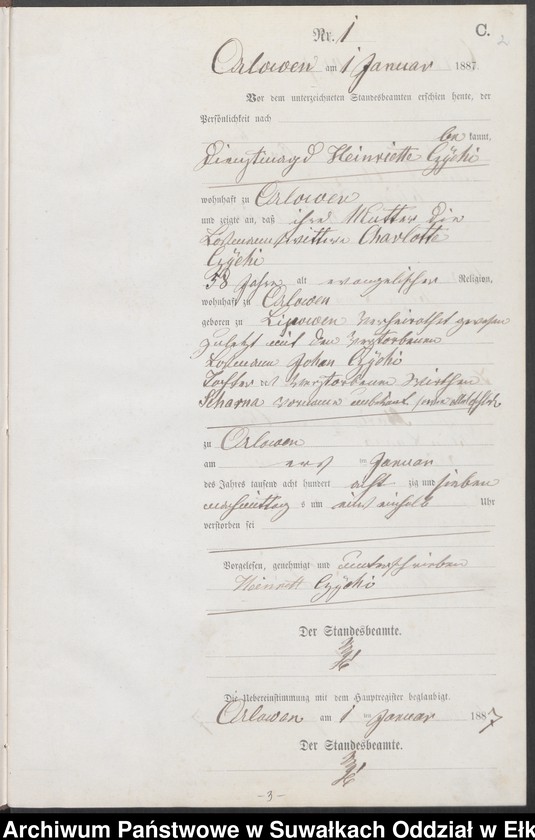 Nr. 1
C. 2
Orlowen am 1 Januar 1887.
Vor dem unterzeichneten Standesbeamten erschien heute, der
Persönlichkeit nach
be kannt,
Dienstmagd Heinriette Czychi
wohnhaft zu Orlowen
und zeigte an, daß ihre Mutter die
Losmannswittwe Charlotte
Czychi
58 Jahre alt evangelischer Religion,
wohnhaft zu Orlowen
geboren zu Lipowen verheirathet gewesen
zuletzt mit den verstorbenen
Losmann Johan Czychi
Tochter des verstorbenen Wirthen
Scharna vorname unbekant
zu Orlowen
am ersten Januar
des Jahres tausend acht hundert acht zig und sieben
nachmittag s um ein einhalb Uhr
verstorben sei
Vorgelesen, genehmigt und unterschrieben
Heinriett Czychi
Der Standesbeamte.
Die Uebereinstimmung mit dem Hauptregister beglaubigt.
Orlowen am 1 ten Januar 1887
Der Standesbeamte.
-3-
Archiwum Państwowe w Suwałkach Oddział w Ełk